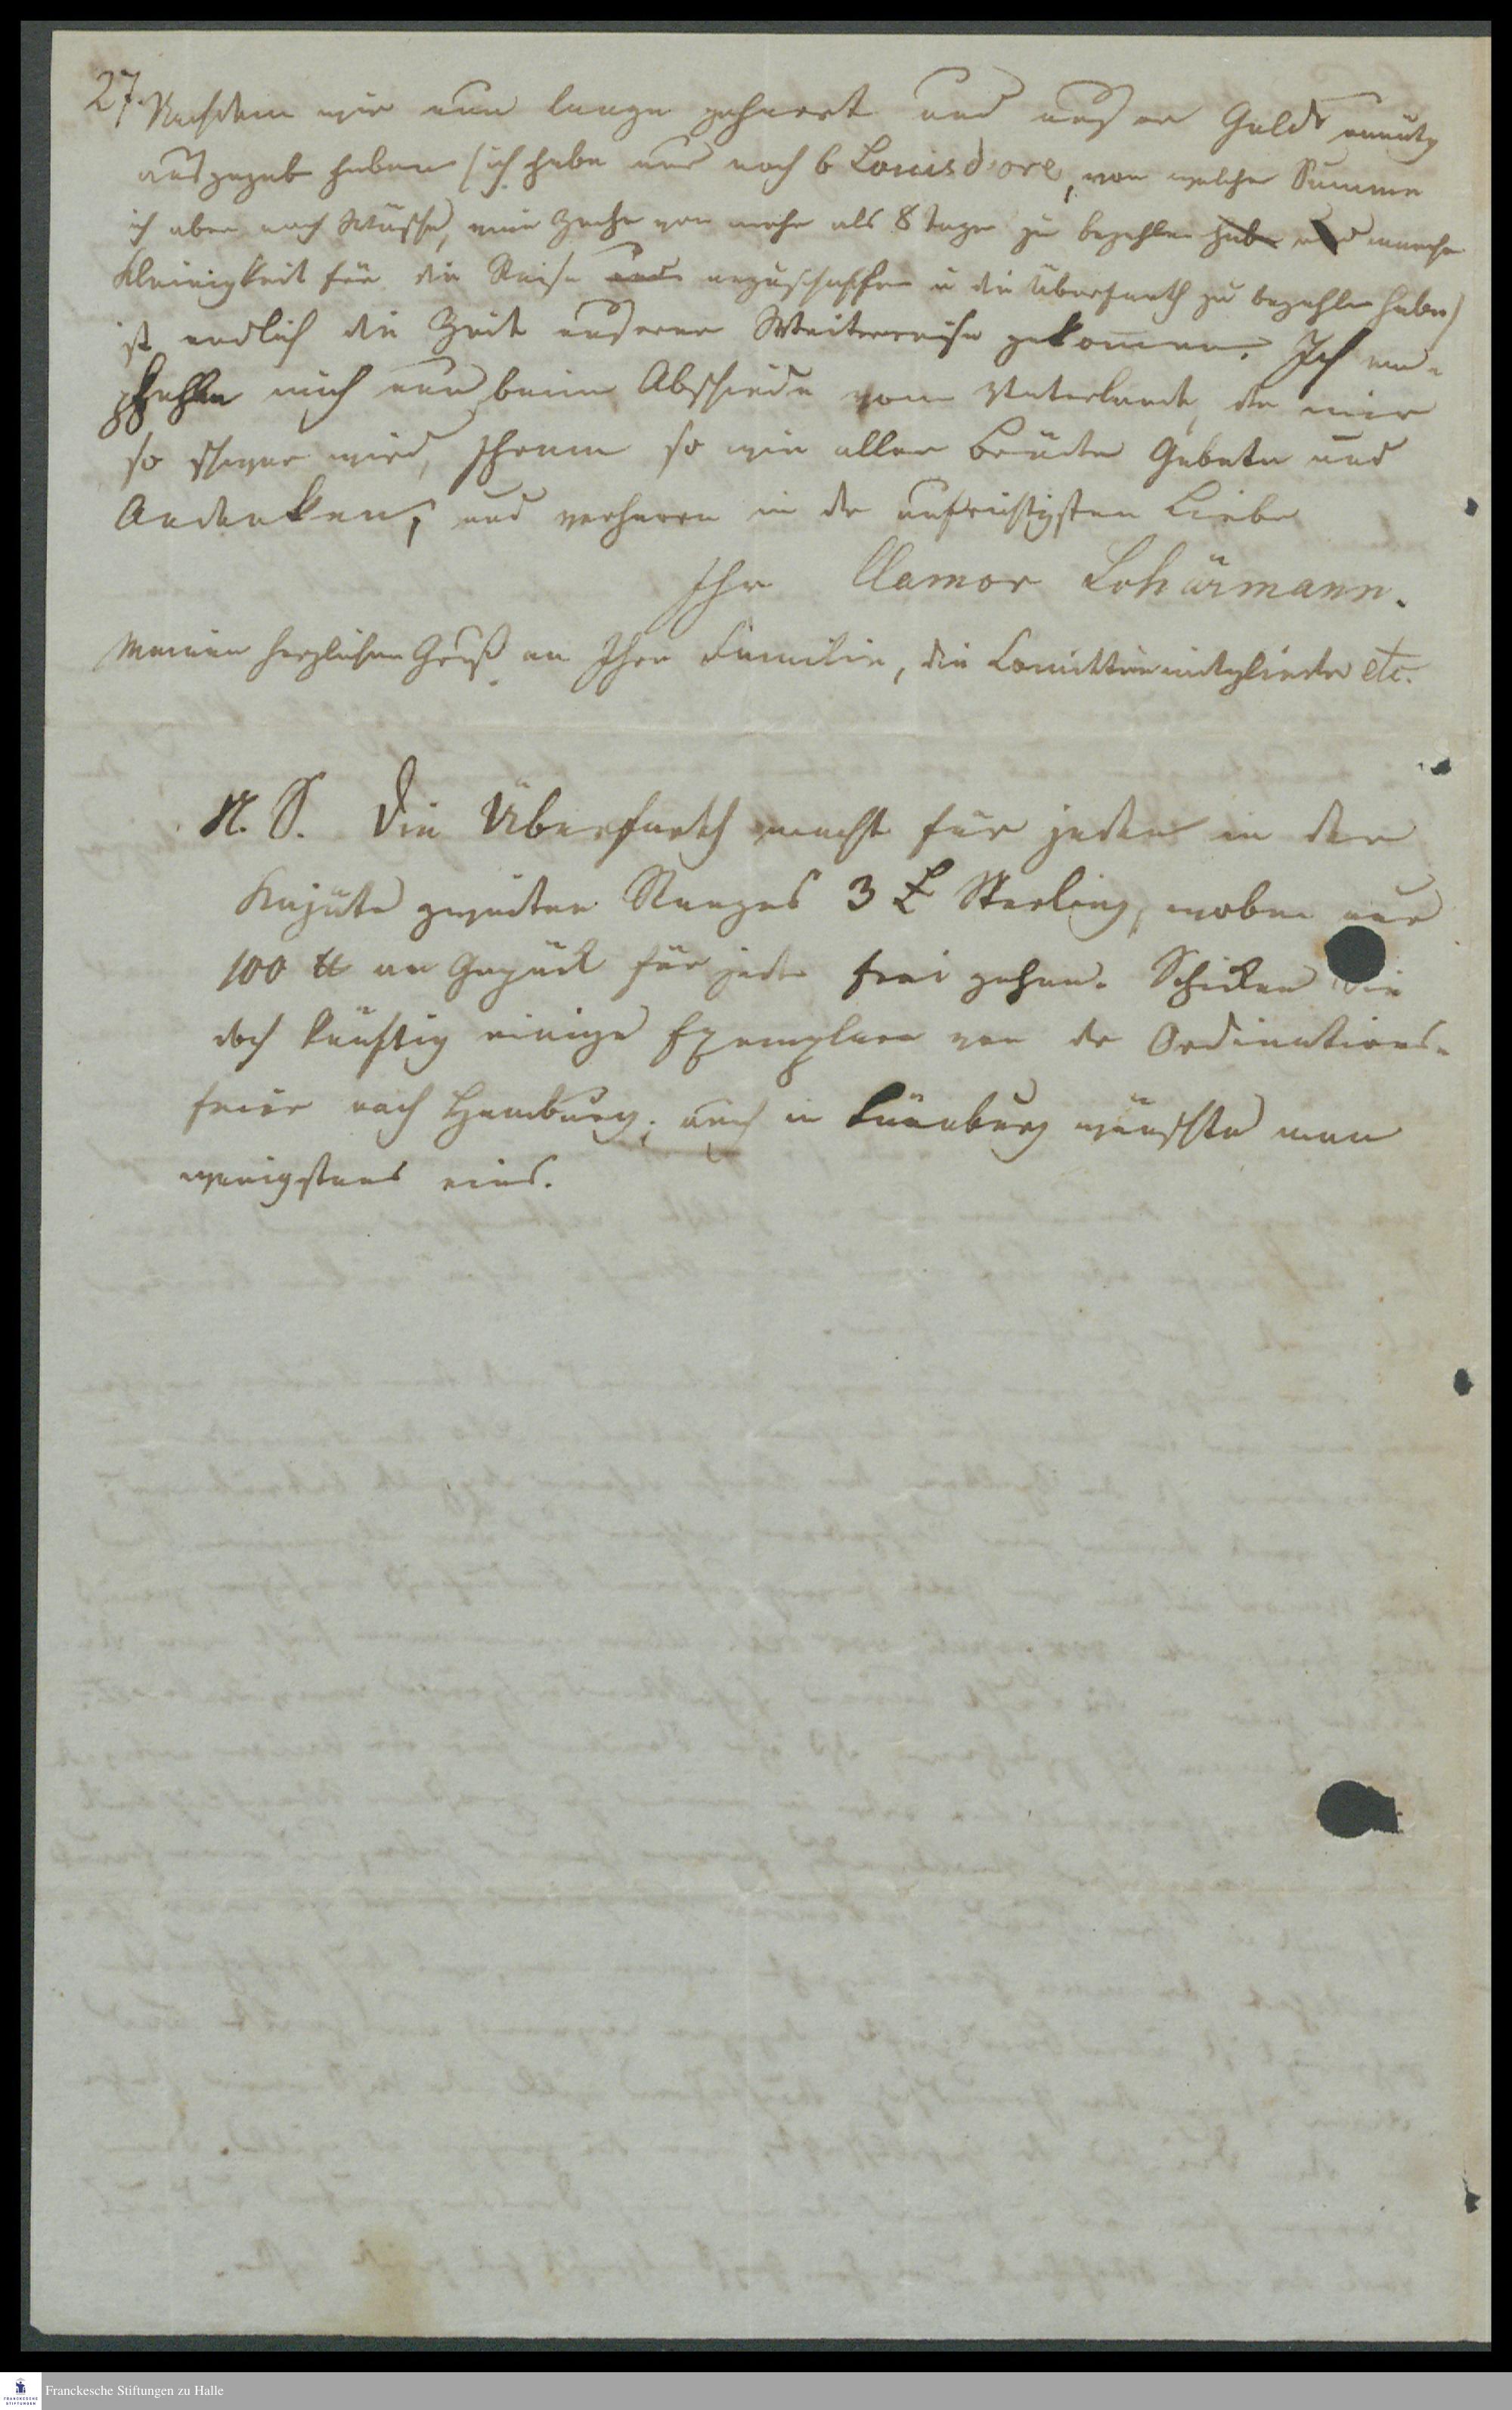 27. Nachdem wir nun lange geharrt und unser Geld unnütz
ausgegeb haben (ich habe nur noch 6 Louisd'ore, von welcher Summe
ich aber noch Wäsche, eine Zeche von mehr als 8 Tagen zu bezahlen habe und manche
Kleinigkeit für die Reise und anzuschaffen u die Überfarth zu bezahlen habe)
ist endlich die Zeit unserer Weiterreise gekommen. Ich em-
pfehle mich nun beim Abschiede vom Vaterlande, der mir
so schwer wird, Ihrem so wie aller Brüder Gebete und
Andenken, und verharre in der aufrichtigsten Liebe
Ihr Clamor Lohärmann.
Meinen herzlichen Gruß an Ihre Familie, die Comitteemitglieder etc.
N. S. Die Überfarth macht für jeden in der
Kajüte zweiten Ranges 3 £ Sterling, wobei nur
100 ℔ an Gepäck für jeden frei gehen. Schicken Sie
doch künftig einige Exemplare von der Ordinations-
feier nach Hamburg; auch in Lünburg wünschte man
wenigstens eins.
Franckesche Stiftungen zu Halle